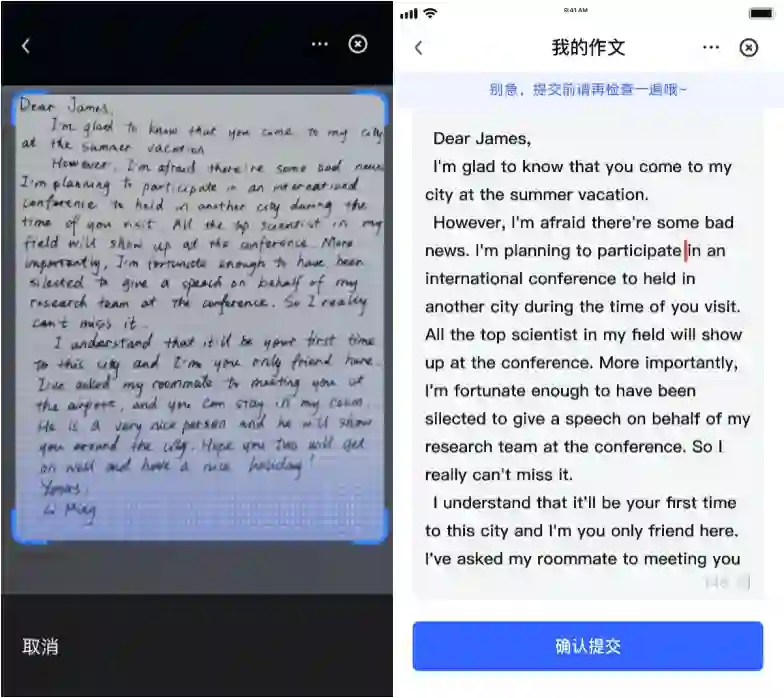 取消
Dear James,
I'm glad to know that you come to my city
at the summer vacation
However, I'm afraid there're some bad news
I'm planning to participate in an international
conference to held in another city during the
time of you visit. All the top scientist in my
field will show up at the conference. More
importantly, I'm fortunate enough to have been
silected to give a speech on behalf of my
research team at the conference. So I really
can't miss it.
I understand that it'll be your first time
to this city and I'm you only friend here.
I've asked my roommate to meeting you at
the airport, and you can stay in my
He is a very nice person and he will show
you around the city. Hope you two will get
on well and have a nice holiday!
Yours,
Li Ming
9:41 AM
我的作文
别急，提交前请再检查一遍哦~
Dear James,
I'm glad to know that you come to my
city at the summer vacation.
However, I'm afraid there're some bad
news. I'm planning to participate in an
international conference to held in
another city during the time of you visit.
All the top scientist in my field will show
up at the conference. More importantly,
I'm fortunate enough to have been
silected to give a speech on behalf of my
research team at the conference. So I
really can't miss it.
I understand that it'll be your first time
to this city and I'm you only friend here.
I've asked my roommate to meeting you
确认提交